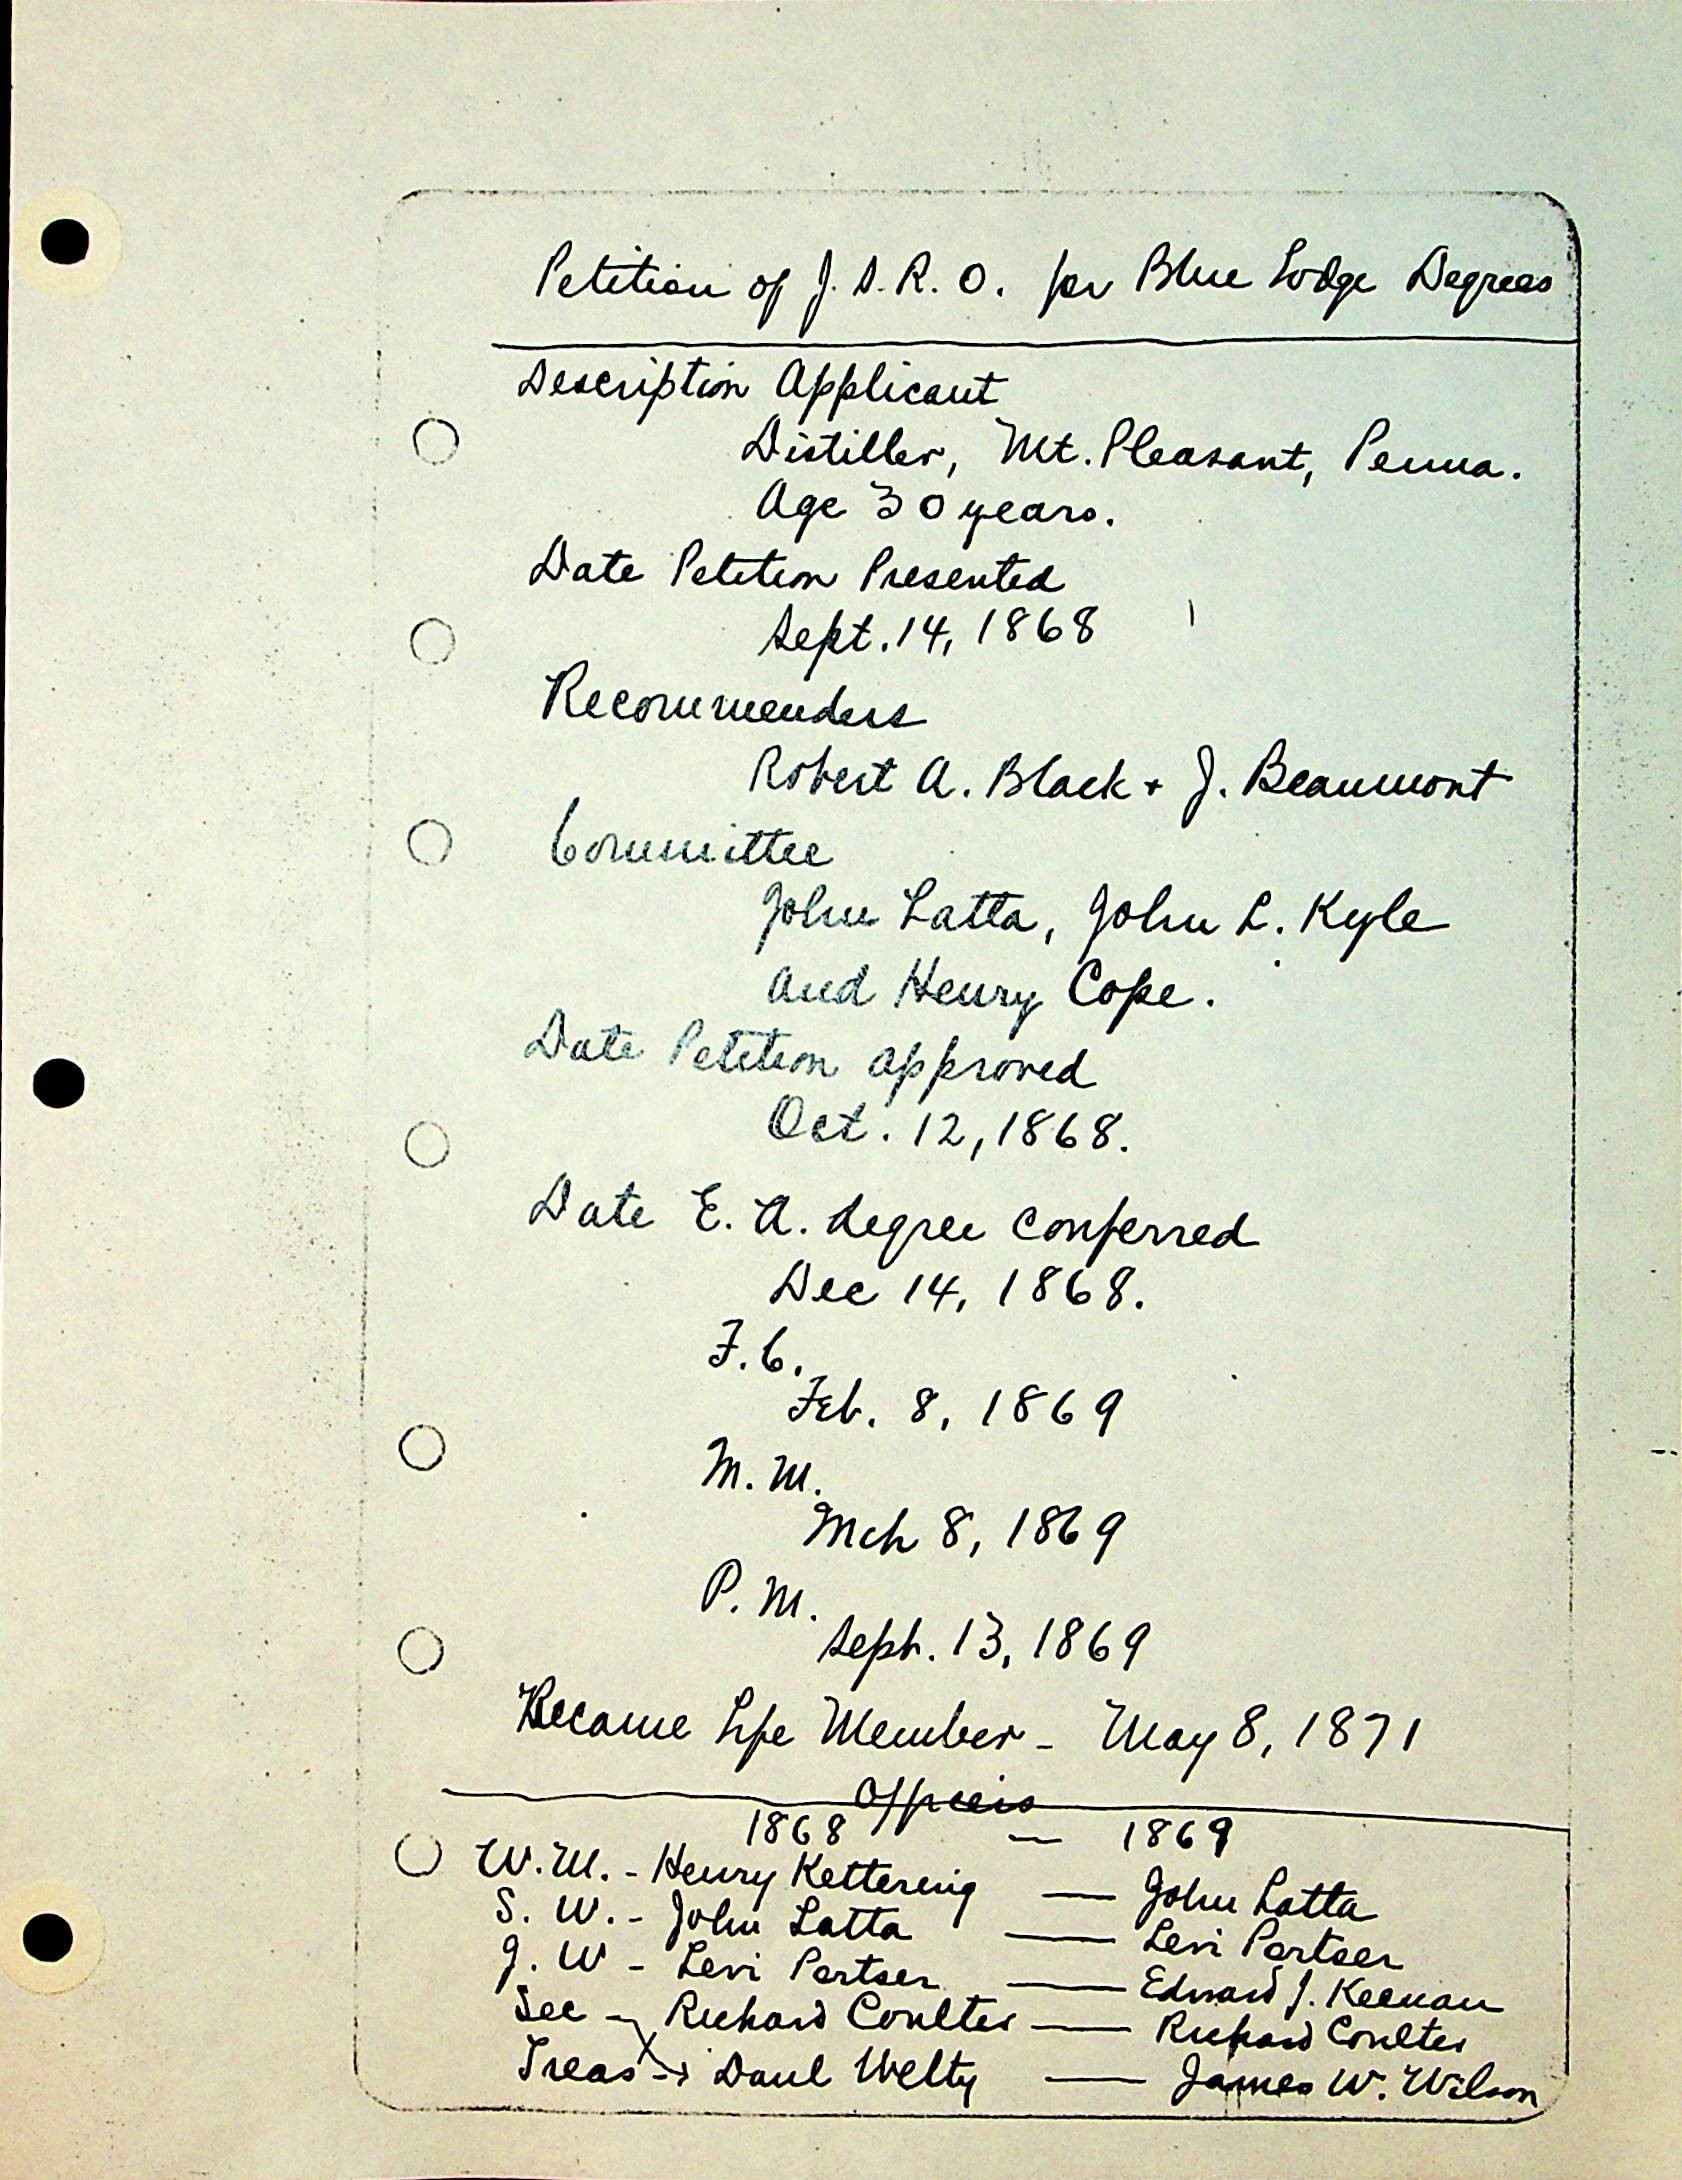 Petition of J. S. R. O. for Blue Lodge Degrees
Description Applicant
Distiller, Mt. Pleasant, Penna.
Age 30 years.
Date Petition Presented
Sept. 14, 1868
Recommenders
Robert A. Black + J. Beaumont
Committee
John Latta, John L. Kyle
and Henry Cope.
Date Petition approved
Oct. 12, 1868.
Date E. A. degree conferred
Dec 14, 1868.
F. C.
Feb. 8, 1869
M. M.
Mch 8, 1869
P. M.
Sept. 13, 1869
Became Life Member - May 8, 1871
Officers
1868 — 1869
W. M. - Henry Kettering — John Latta
S. W. - John Latta — Levi Portser
J. W - Levi Portser — Edward J. Keenan
Sec - Richard Coulter — Richard Coulter
Treas → Danl Welty — James W. Wilson